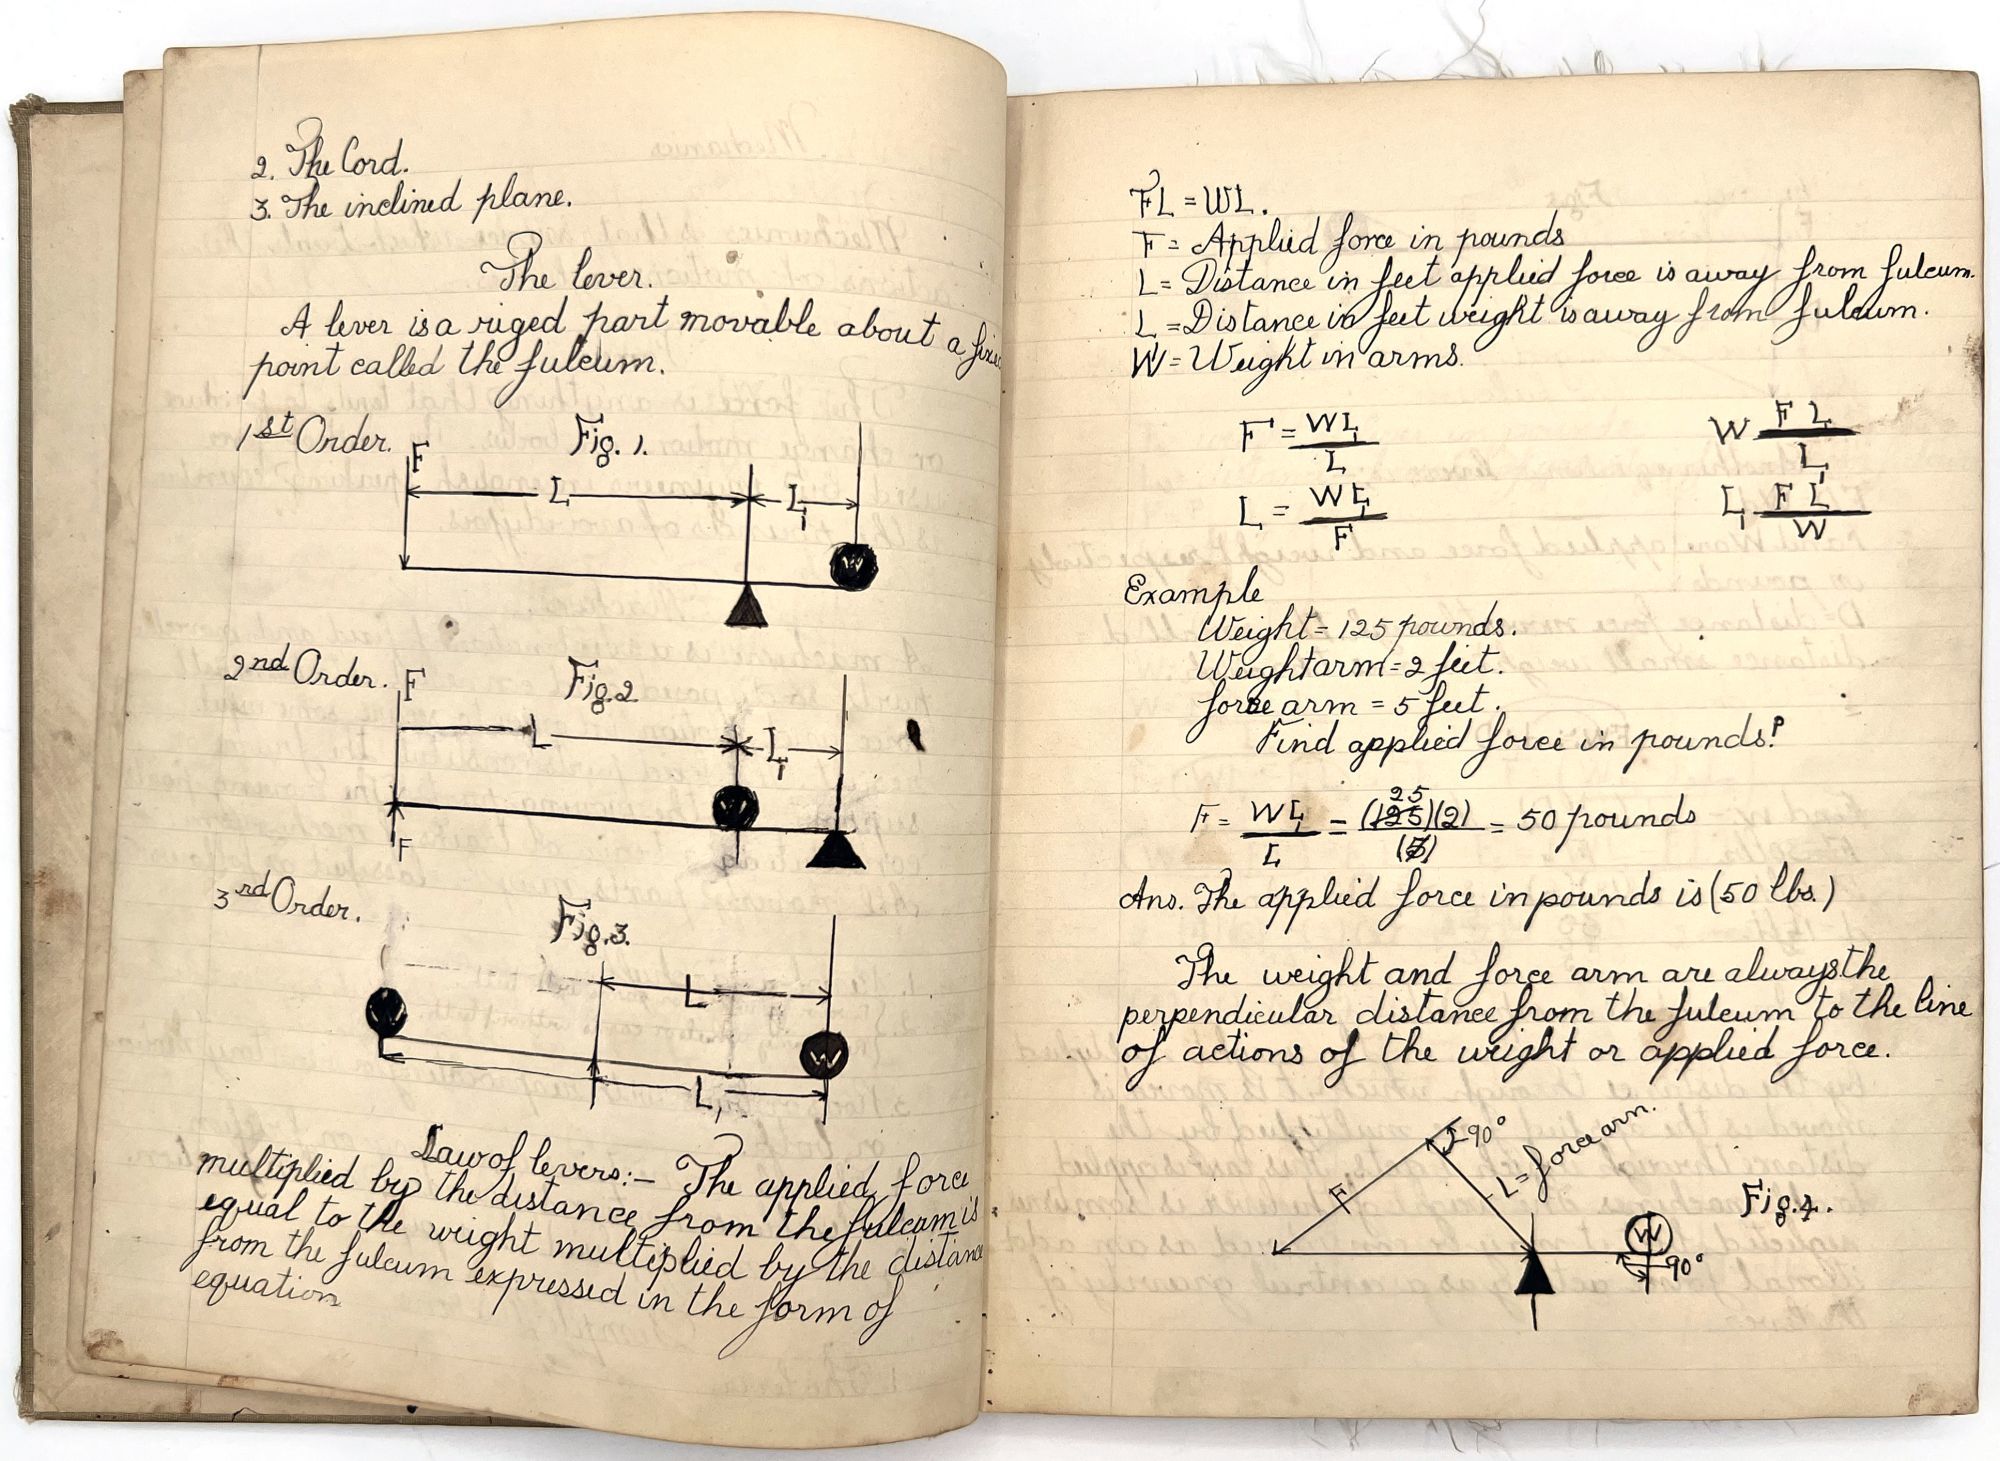 2. The Cord.
3. The inclined plane.
The lever.
A lever is a riged part movable about a
point called the fulcum.
1st Order. F Fig. 1.
L L1
W
2nd Order. F Fig. 2
L L1
W
F
3rd Order. Fig. 3.
L
W
L1
Law of levers:- The applied force
multiplied by the distance from the fulcum is
equal to the weight multiplied by the distance
from the fulcum expressed in the form of
equation
FL = WL.
F = Applied force in pounds
L = Distance in feet applied force is away from fulcum.
L = Distance in feet weight is away from fulcum.
W = Weight in arms.
F = WL1/L W FL/L1
L = WL1/F L1 FL/W
Example
Weight = 125 pounds.
Weight arm = 2 feet.
force arm = 5 feet.
Find applied force in pounds?
25
F = WL1/L = (125)(2)/(5) = 50 pounds
Ans. The applied force in pounds is (50 lbs.)
The weight and force arm are always the
perpendicular distance from the fulcum to the line
of actions of the weight or applied force.
90°
L = force arm.
F
Fig. 4.
W
90°